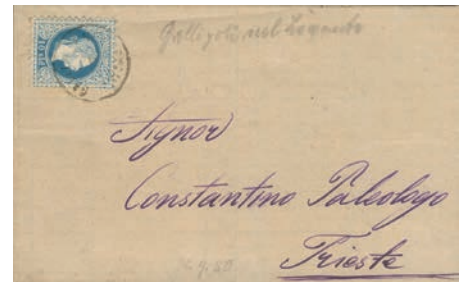 Gallipoli nel Levante
Signor
Constantino Paleologo
Trieste
9.80